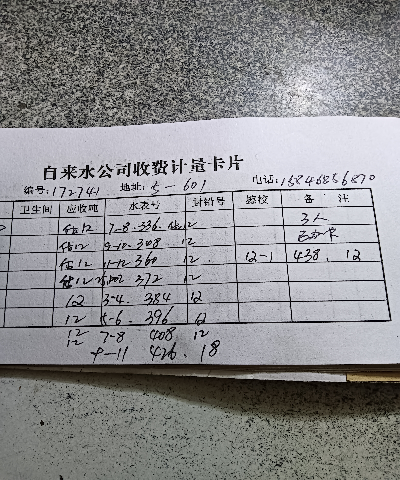 自来水公司收费计量卡片
编号:172741 地址:5-601 电话:15846856870
卫生间 应收吨 水表号 计铅号 验校 备 注
估12 7-8.336 估12 3人
估12 9-10.308 12 已办卡
估12 11-12 360 12 12-1 438.12
估12 372 12
12 3-4.384 12
12 5-6.396 12
12 7-8 408 12
12 9-11 426.18